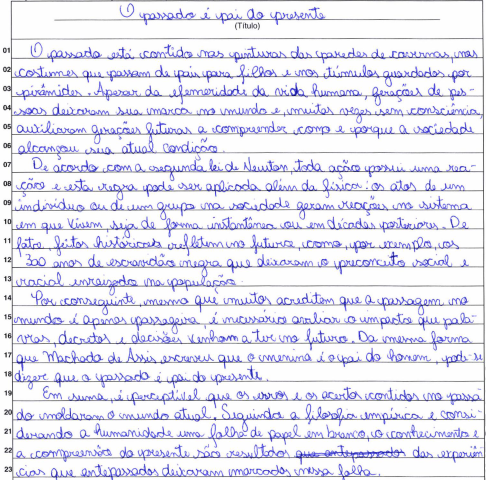 O passado é pai do presente
(Título)
01 O passado está contido nas pinturas das paredes de cavernas, nos
02 costumes que passam de pai para filhos e nos túmulos guardados por
03 pirâmides. Apesar da efemeridade da vida humana, gerações de pes-
04 soas deixaram sua marca no mundo e, muitas vezes sem consciência,
05 auxiliaram gerações futuras a compreender como e porque a sociedade
06 alcançou sua atual condição.
07 De acordo com a segunda lei de Newton, toda ação possui uma rea-
08 ção e esta regra pode ser aplicada além da física: os atos de um
09 indivíduo ou de um grupo na sociedade geram reações no sistema
10 em que vivem, seja de forma instantânea ou em décadas posteriores. De
11 fato, feitos históricos refletem no futuro, como, por exemplo, os
12 300 anos de escravidão negra que deixaram o preconceito social e
13 racial enraizado na população.
14 Por conseguinte, mesmo que muitos acreditem que a passagem no
15 mundo é apenas passageira, é necessário avaliar o impacto que pala-
16 vras, decretos e decisões venham a ter no futuro. Da mesma forma
17 que Machado de Assis escreveu que o menino é o pai do homem, pode-se
18 dizer que o passado é pai do presente.
19 Em suma, é perceptível que os erros e os acertos contidos no passa-
20 do moldaram o mundo atual. Seguindo a filosofia empírica e consi-
21 derando a humanidade uma folha de papel em branco, o conhecimento e
22 a compreensão do presente são resultados que antepassados das experiên-
23 cias que antepassados deixaram marcados nessa folha.